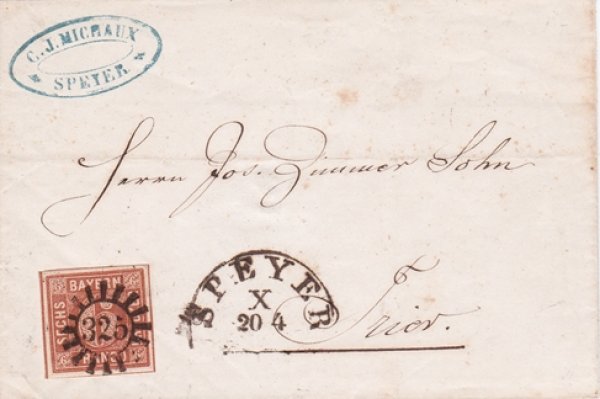 C. J. MICHAUX
SPEYER
Herrn Jos. Zimmer Sohn
Trier.
SPEYER
X
20 4
BAYERN
SECHS
325